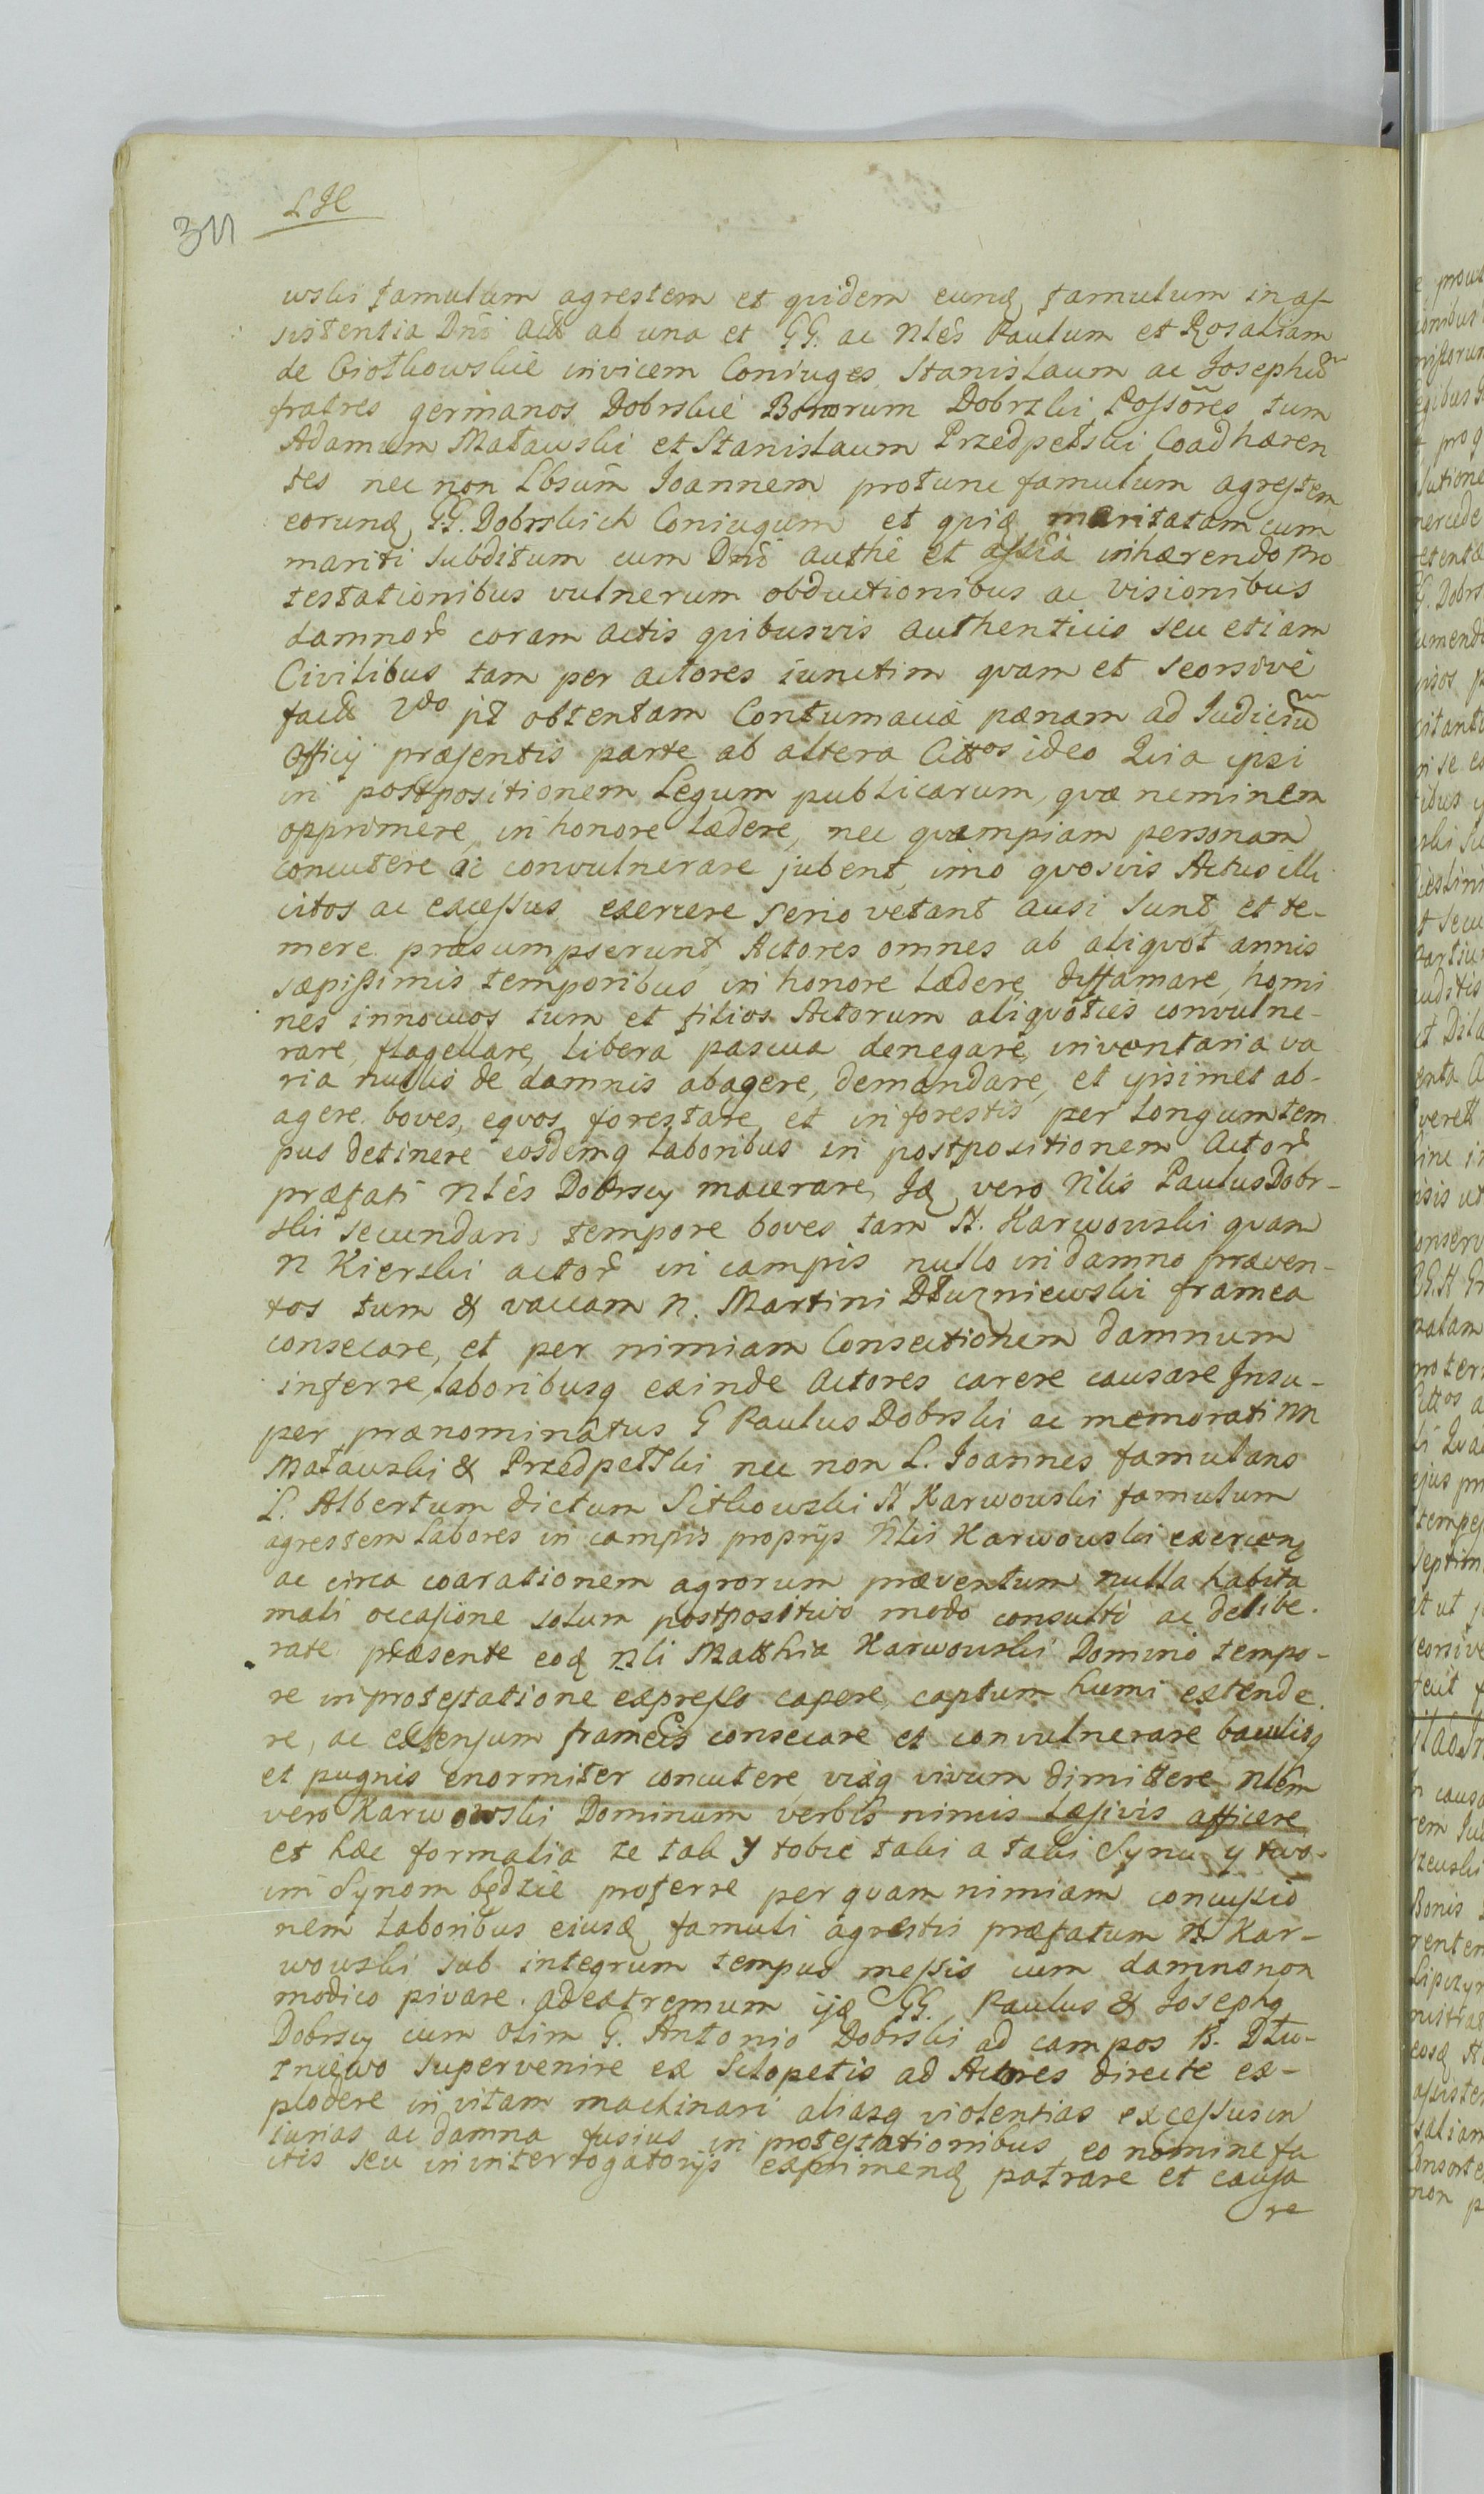 311
wski famulum agrestem et quidem eund famulum in as-
sistentia Dni Actt ab una et GG. ac Nles Paulum et Rosaliam
de Ciołkowskie invicem Coniuges Stanislaum ac Josephū
fratres germanos Dobrskie Bonorum Dobrzki Possōres tum
Adamum Matawski et Stanislaum Przedpełski Coadhæren
tes nec non Lbsum Joannem protunc famulum agrestem
eorund GG. Dobrskich Coniugum et quid maritatam cum
mariti subditum cum Dni authē et assīa inhærendo pro
testationibus vulnerum obductionibus ac visionibus
damnor coram actis quibusvis authenticis seu etiam
Civilibus tam per actores iunctim quam et seorsivè
factt 2do pt obtentam Contumaciæ pænam ad Iudiciū
Officij præsentis parte ab altera Cittos ideo Quia ipsi
in postpositionem Legum publicarum, quæ neminem
opprimere, in honore lædere, nec quampiam personam
concutere ac convulnerare jubent, imo quosvis Actus illi
citos ac excessus exercere serio vetant ausi sunt et te-
mere præsumpserunt Actores omnes ab aliquot annis
sæpissimis temporibus in honore lædere, diffamare, homi
nes innocuos tum et filios Actorum aliquoties convulne-
rare, flagellare, libera pascua denegare, inventaria va
ria nullis de damnis abagere, demandare, et ipsimet ab-
agere boves, equos forestare, et in forestis per longum tem
pus detinere eosdemq laboribus in postpositionem Actor
præfati Nlēs Dobrscy macerare, Id vero Nlis Paulus Dobr-
ski secundario tempore boves tam N. Karwowski quam
N Kierski actor in campis nullo in damno præven-
tos tum & vaccam N. Martini Dłuzniewski framea
consecare, et per nimiam Consectionem damnum
inferre, laboribusq exinde Actores carere causare Insu-
per prænominatus G Paulus Dobrski ac memorati NN
Matawski & Przedpełski nec non L. Joannes famulans
L. Albertum dictum Sitkowski N Karwowski famulum
agrestem labores in campis proprijs Nlis Karwowski exercen
ac circa coarationem agrorum præventum nulla habita
mali occasione solum postpositivo modo consulto ac delibe-
rate præsente eod Nli Matthia Karwowski Domino tempo-
re in protestatione expresso capere, captum humi extende
re, ac extensum frameis consecare et convulnerare baculisq
et pugnis enormiter concutere vixq vivum dimittere Nlem
vero Karwowski Dominum verbis nimis læsivis afficere
et hæc formalia ze tak y tobie taki a taki Synu y two-
im Synom będzie proferre per quam nimiam concussio
nem laboribus eiusd famuli agrestis præfatum N. Kar-
wowski sub integrum tempus messis cum damno non
modico pivare. ad extremum ijd GG. Paulus & Josephq
Dobrscy cum olim G. Antonio Dobrski ad campos B. Dłu-
zniewo supervenire ex Sclopetis ad Actores directe ex-
plodere in vitam machinari aliasq violentias excessus in
iurias ac damna fusius in protestationibus eo nomine fa
ctis seu in interrogatorijs exprimend patrare et causa
re